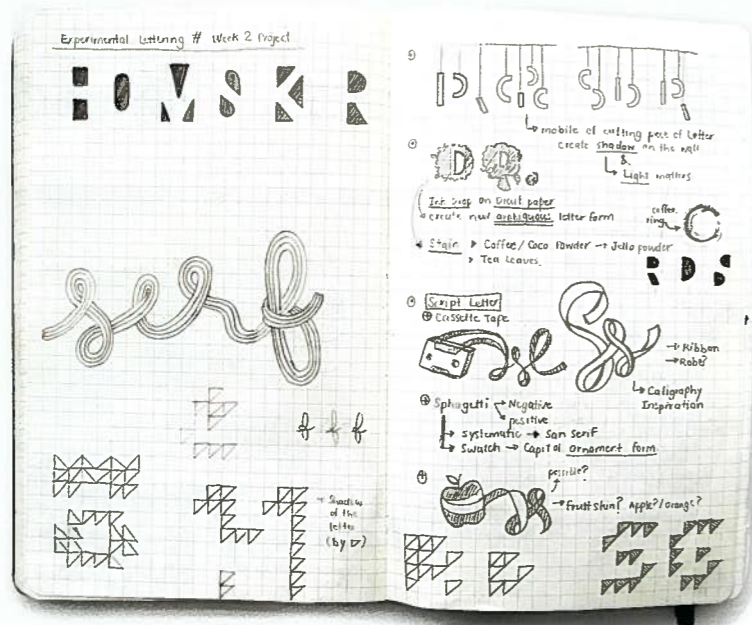 Experimental Lettering # Week 2 Project
H O M S K R
serif
f f f
Shadow
of the
letter
(by ▽)
mobile of cutting piece of letter
create shadow on the wall
&
Light matters
D R
Ink Drop on Dicut paper
create new ambiguous letter form
coffee
ring
Stain Coffee / Coco Powder → Jello powder
Tea Leaves.
R D S
Script Letter
Cassette Tape
→ Ribbon
→ Robe?
Caligraphy
Inspiration
Sphagetti Negative
positive
→ systematic → San Serif
→ Swatch → Capital ornament form
possible?
→ Fruit skin? Apple? / orange?